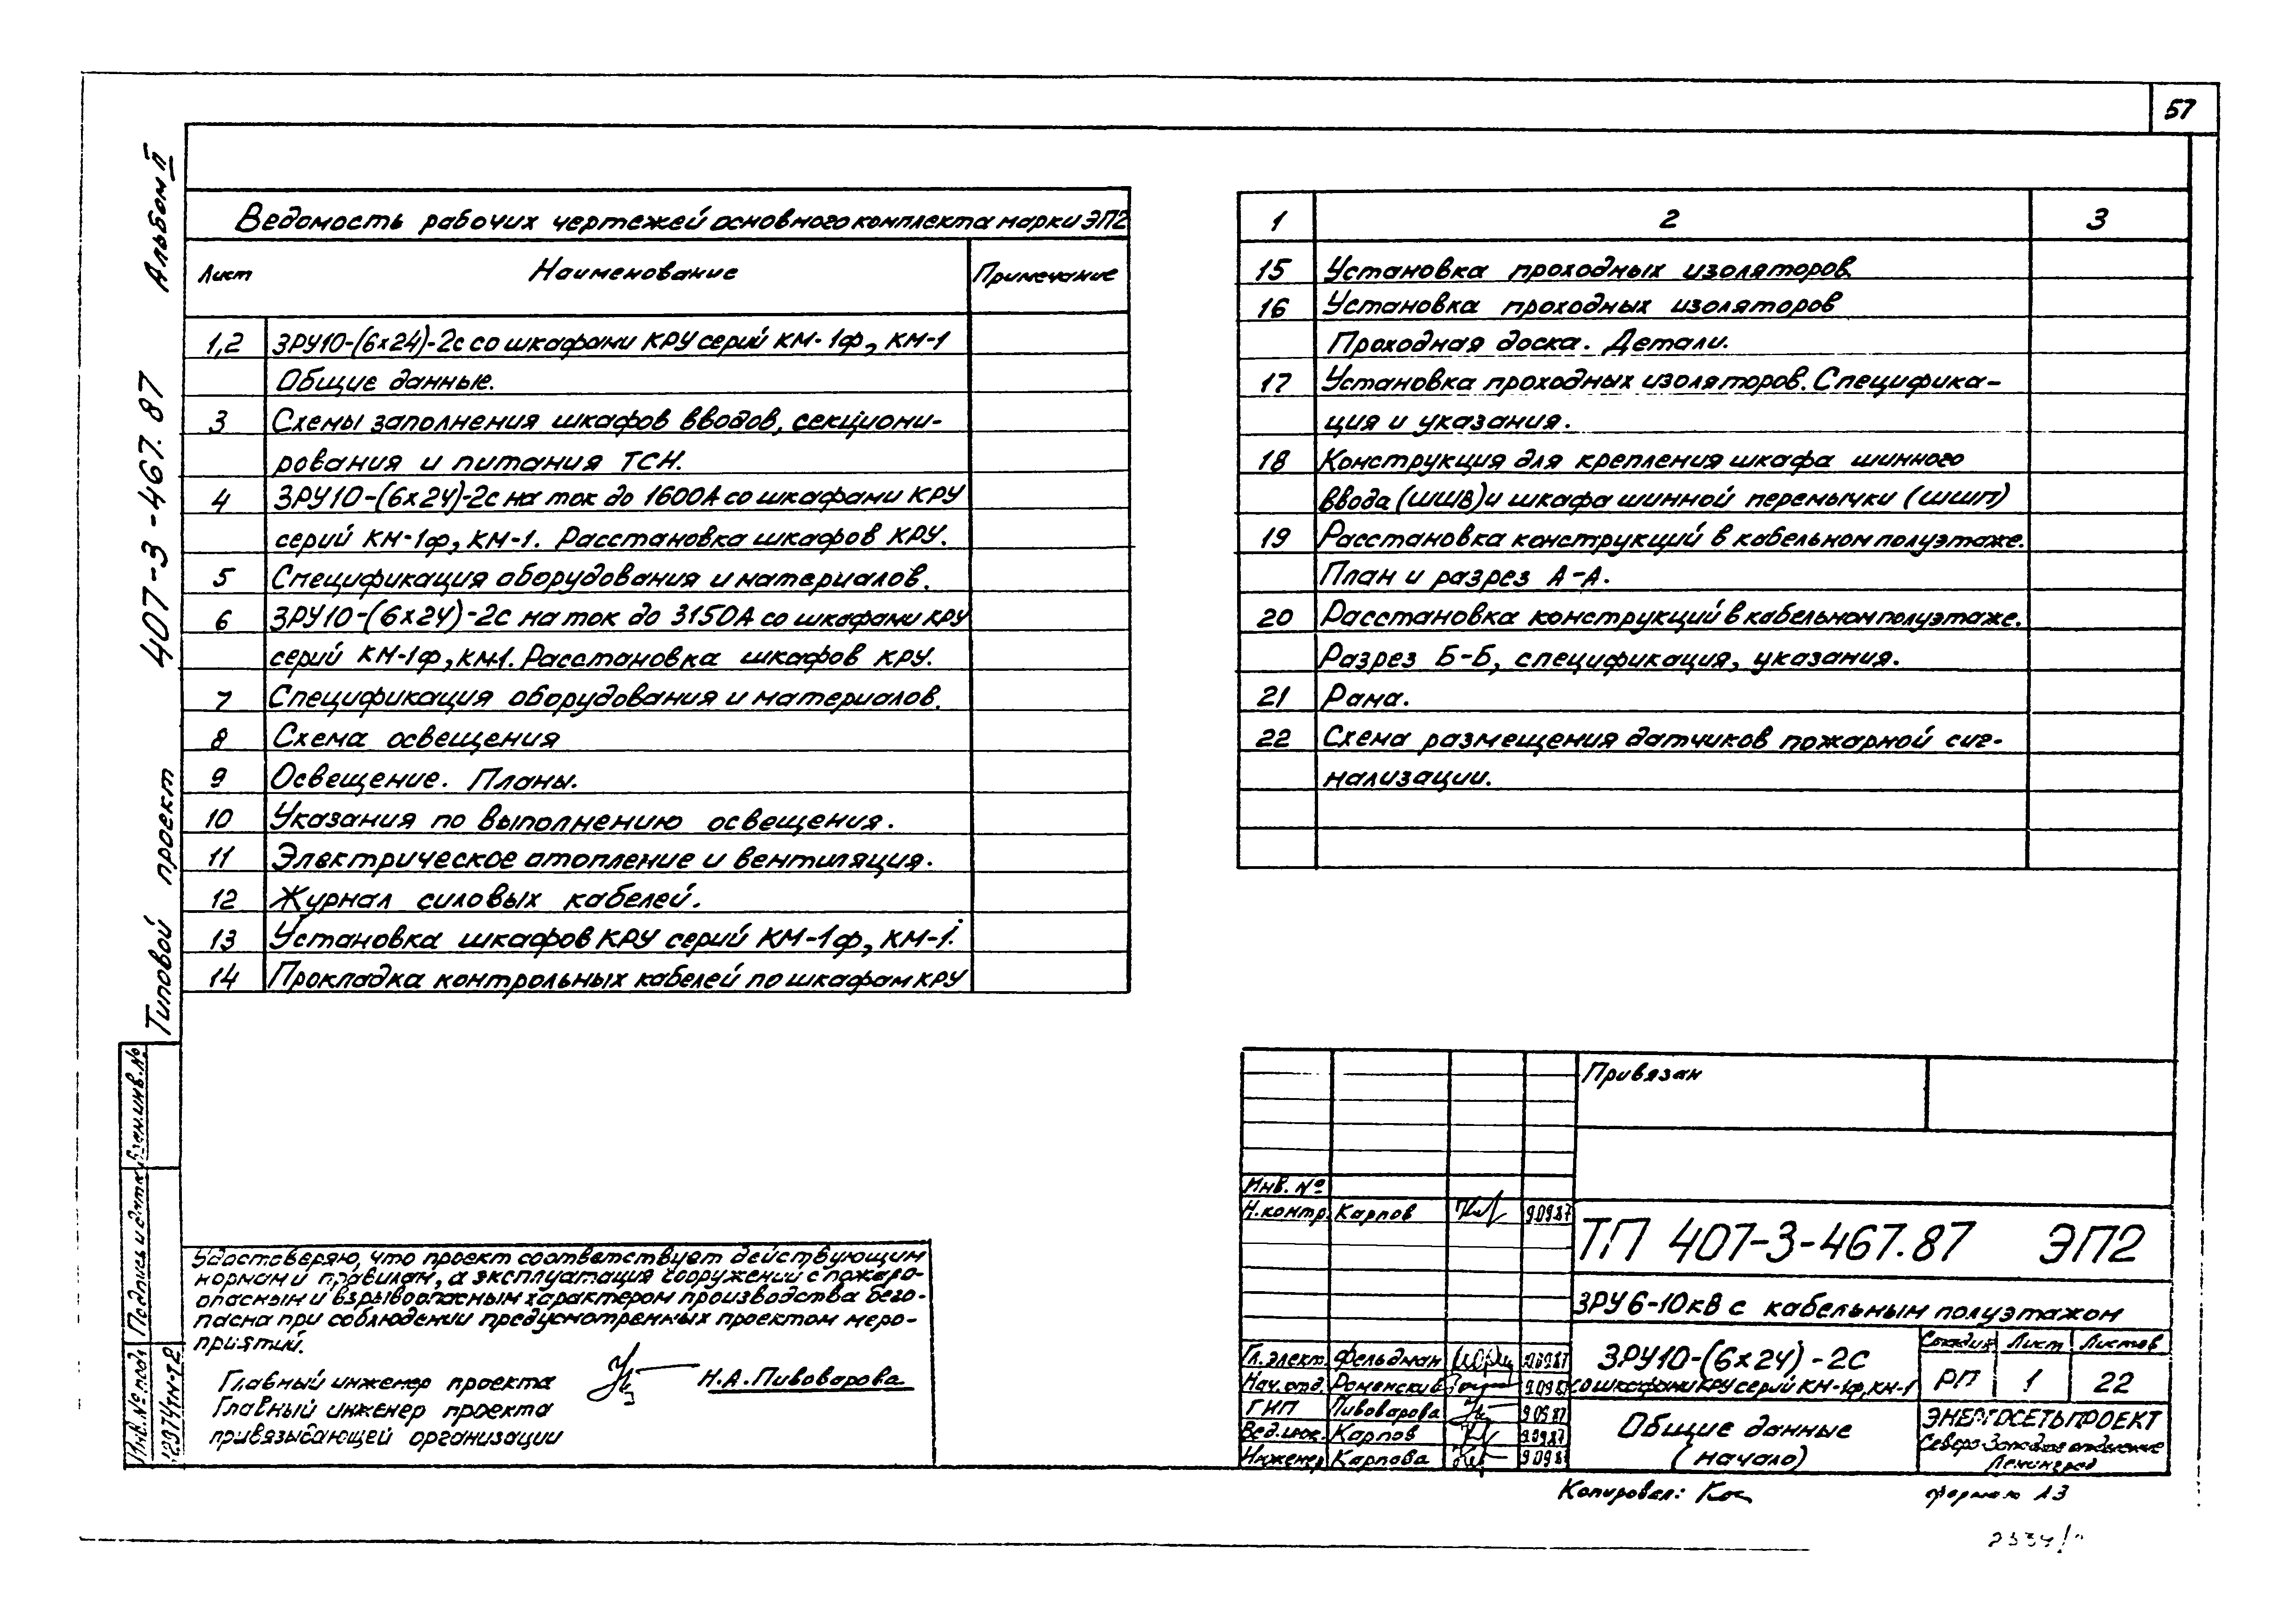 57
Типовой проект 407-3-467.87 Альбом II
Ведомость рабочих чертежей основного комплекта марки ЭП2
Лист Наименование Примечание
1,2 ЗРУ10-(6х24)-2с со шкафами КРУ серий КМ-1ф, КМ-1
Общие данные.
3 Схемы заполнения шкафов вводов, секциони-
рования и питания ТСН.
4 ЗРУ10-(6х24)-2с на ток до 1600А со шкафами КРУ
серий КМ-1ф, КМ-1. Расстановка шкафов КРУ.
5 Спецификация оборудования и материалов.
6 ЗРУ10-(6х24)-2с на ток до 3150А со шкафами КРУ
серий КМ-1ф, КМ-1. Расстановка шкафов КРУ.
7 Спецификация оборудования и материалов.
8 Схема освещения
9 Освещение. Планы.
10 Указания по выполнению освещения.
11 Электрическое отопление и вентиляция.
12 Журнал силовых кабелей.
13 Установка шкафов КРУ серий КМ-1ф, КМ-1.
14 Прокладка контрольных кабелей по шкафам КРУ
1 2 3
15 Установка проходных изоляторов
16 Установка проходных изоляторов
Проходная доска. Детали.
17 Установка проходных изоляторов. Специфика-
ция и указания.
18 Конструкция для крепления шкафа шинного
ввода (ШШВ) и шкафа шинной перемычки (ШШП)
19 Расстановка конструкций в кабельном полуэтаже.
План и разрез А-А.
20 Расстановка конструкций в кабельном полуэтаже.
Разрез Б-Б, спецификация, указания.
21 Рама.
22 Схема размещения датчиков пожарной сиг-
нализации.
Удостоверяю, что проект соответствует действующим
нормам и правилам, а эксплуатация сооружений с пожаро-
опасным и взрывоопасным характером производства безо-
пасна при соблюдении предусмотренных проектом меро-
приятий.
Главный инженер проекта Н.А. Пивоварова
Главный инженер проекта
привязывающей организации
Инв. № подл. Подпись и дата Взам. инв. №
12974тм-т2
Привязан
Инв. №
Н.контр. Карпов 9.09.87
ТП 407-3-467.87 ЭП2
ЗРУ 6-10кВ с кабельным полуэтажом
Гл.элект. Фельдман
Нач.отд. Роменский 9.09.87
ГИП Пивоварова 9.09.87
Вед.инж. Карпов 9.09.87
Инженер Карпова 9.09.87
ЗРУ10-(6х24)-2С
со шкафами КРУ серий КМ-1ф, КМ-1
Стадия Лист Листов
РП 1 22
Общие данные
(начало)
ЭНЕРГОСЕТЬПРОЕКТ
Северо-Западное отделение
Ленинград
Копировал: формат А3